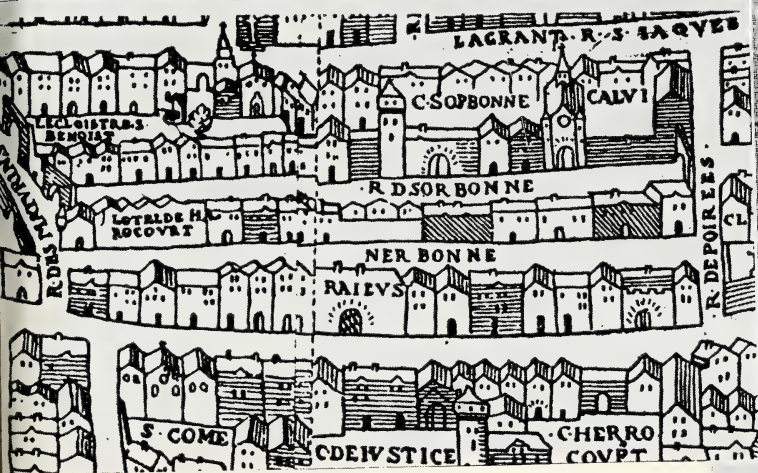 LAGRANT. R. S. IAQVES
C. SORBONNE
CALVI
LECLOISTRE. S.
BENOIST
R. DES MATVRINS
R DSORBONNE
LOTRLDE HA
ROCOVRT
NERBONNE
R. DEPOIREES.
CL
RAIEVS
S. COME
C. DEIVSTICE
C. HERRO
COVRT